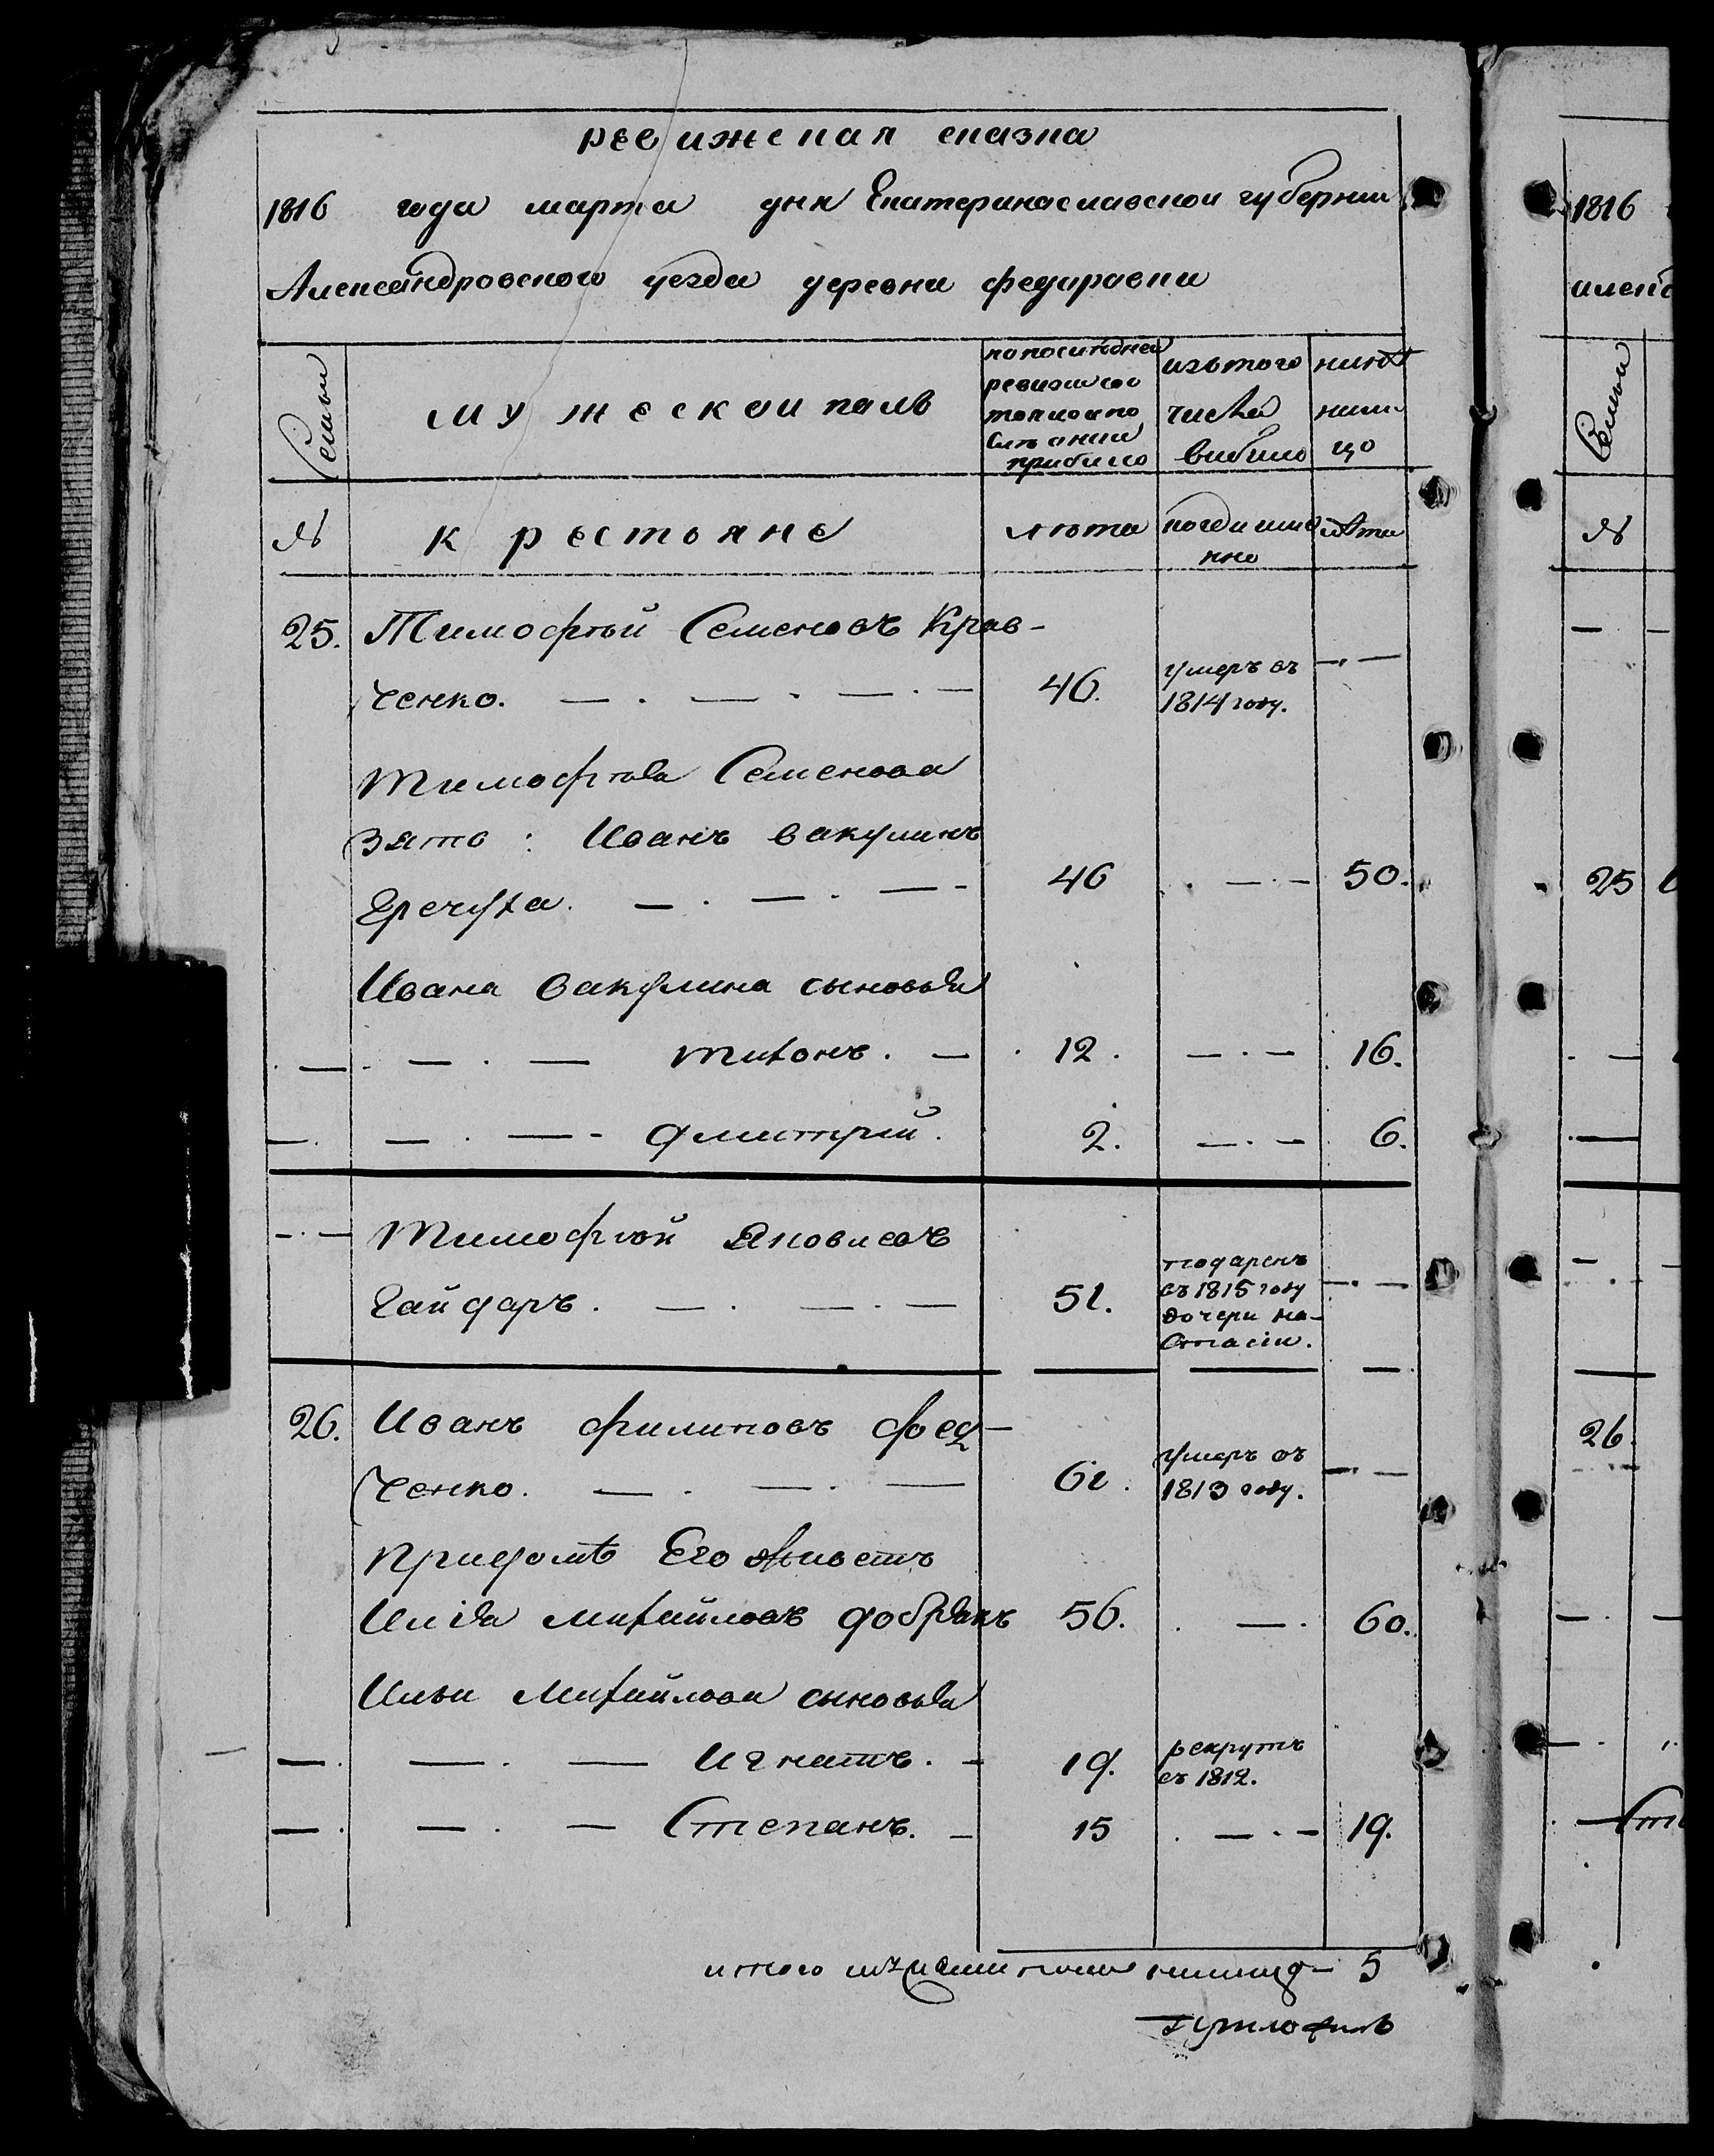 ревижская сказка
1816 года марта дня Екатеринаславской губернии
Александровского уезда деревни федаровки
Семьи
мужескои полъ
по последней
ревизии сос
тояло и по
слъ онии
прибыло
изъ того
числа
выбыло
ныне
на ли
цо
№
крестьяне
лѣта
когда имя
нно
лѣта
25. Тимофѣй Семеновъ Крав-
ченко. 46. умеръ въ
1814 году.
Тимофѣя Семенова
зять: Иванъ Вакулинъ
Еречуха. 46 50.
Ивана Вакулина сыновья
Тихонъ. 12. 16.
Дмитрий. 2. 6.
Тимофѣй Яковлевъ
Гайдаръ. 51. подаренъ
въ 1815 году
дочери На-
стасіи.
26. Иванъ Филиповъ Фед-
ченко. 61. умеръ въ
1813 году.
Придомѣ Его живетъ
Илія Михайловъ Добрякъ 56. 60.
Ильи Михайлова сыновья
Игнатъ. 19. рекрутъ
въ 1812.
Степанъ. 15 19.
итого 5
1816
алекс
Семьи
№
25
26.